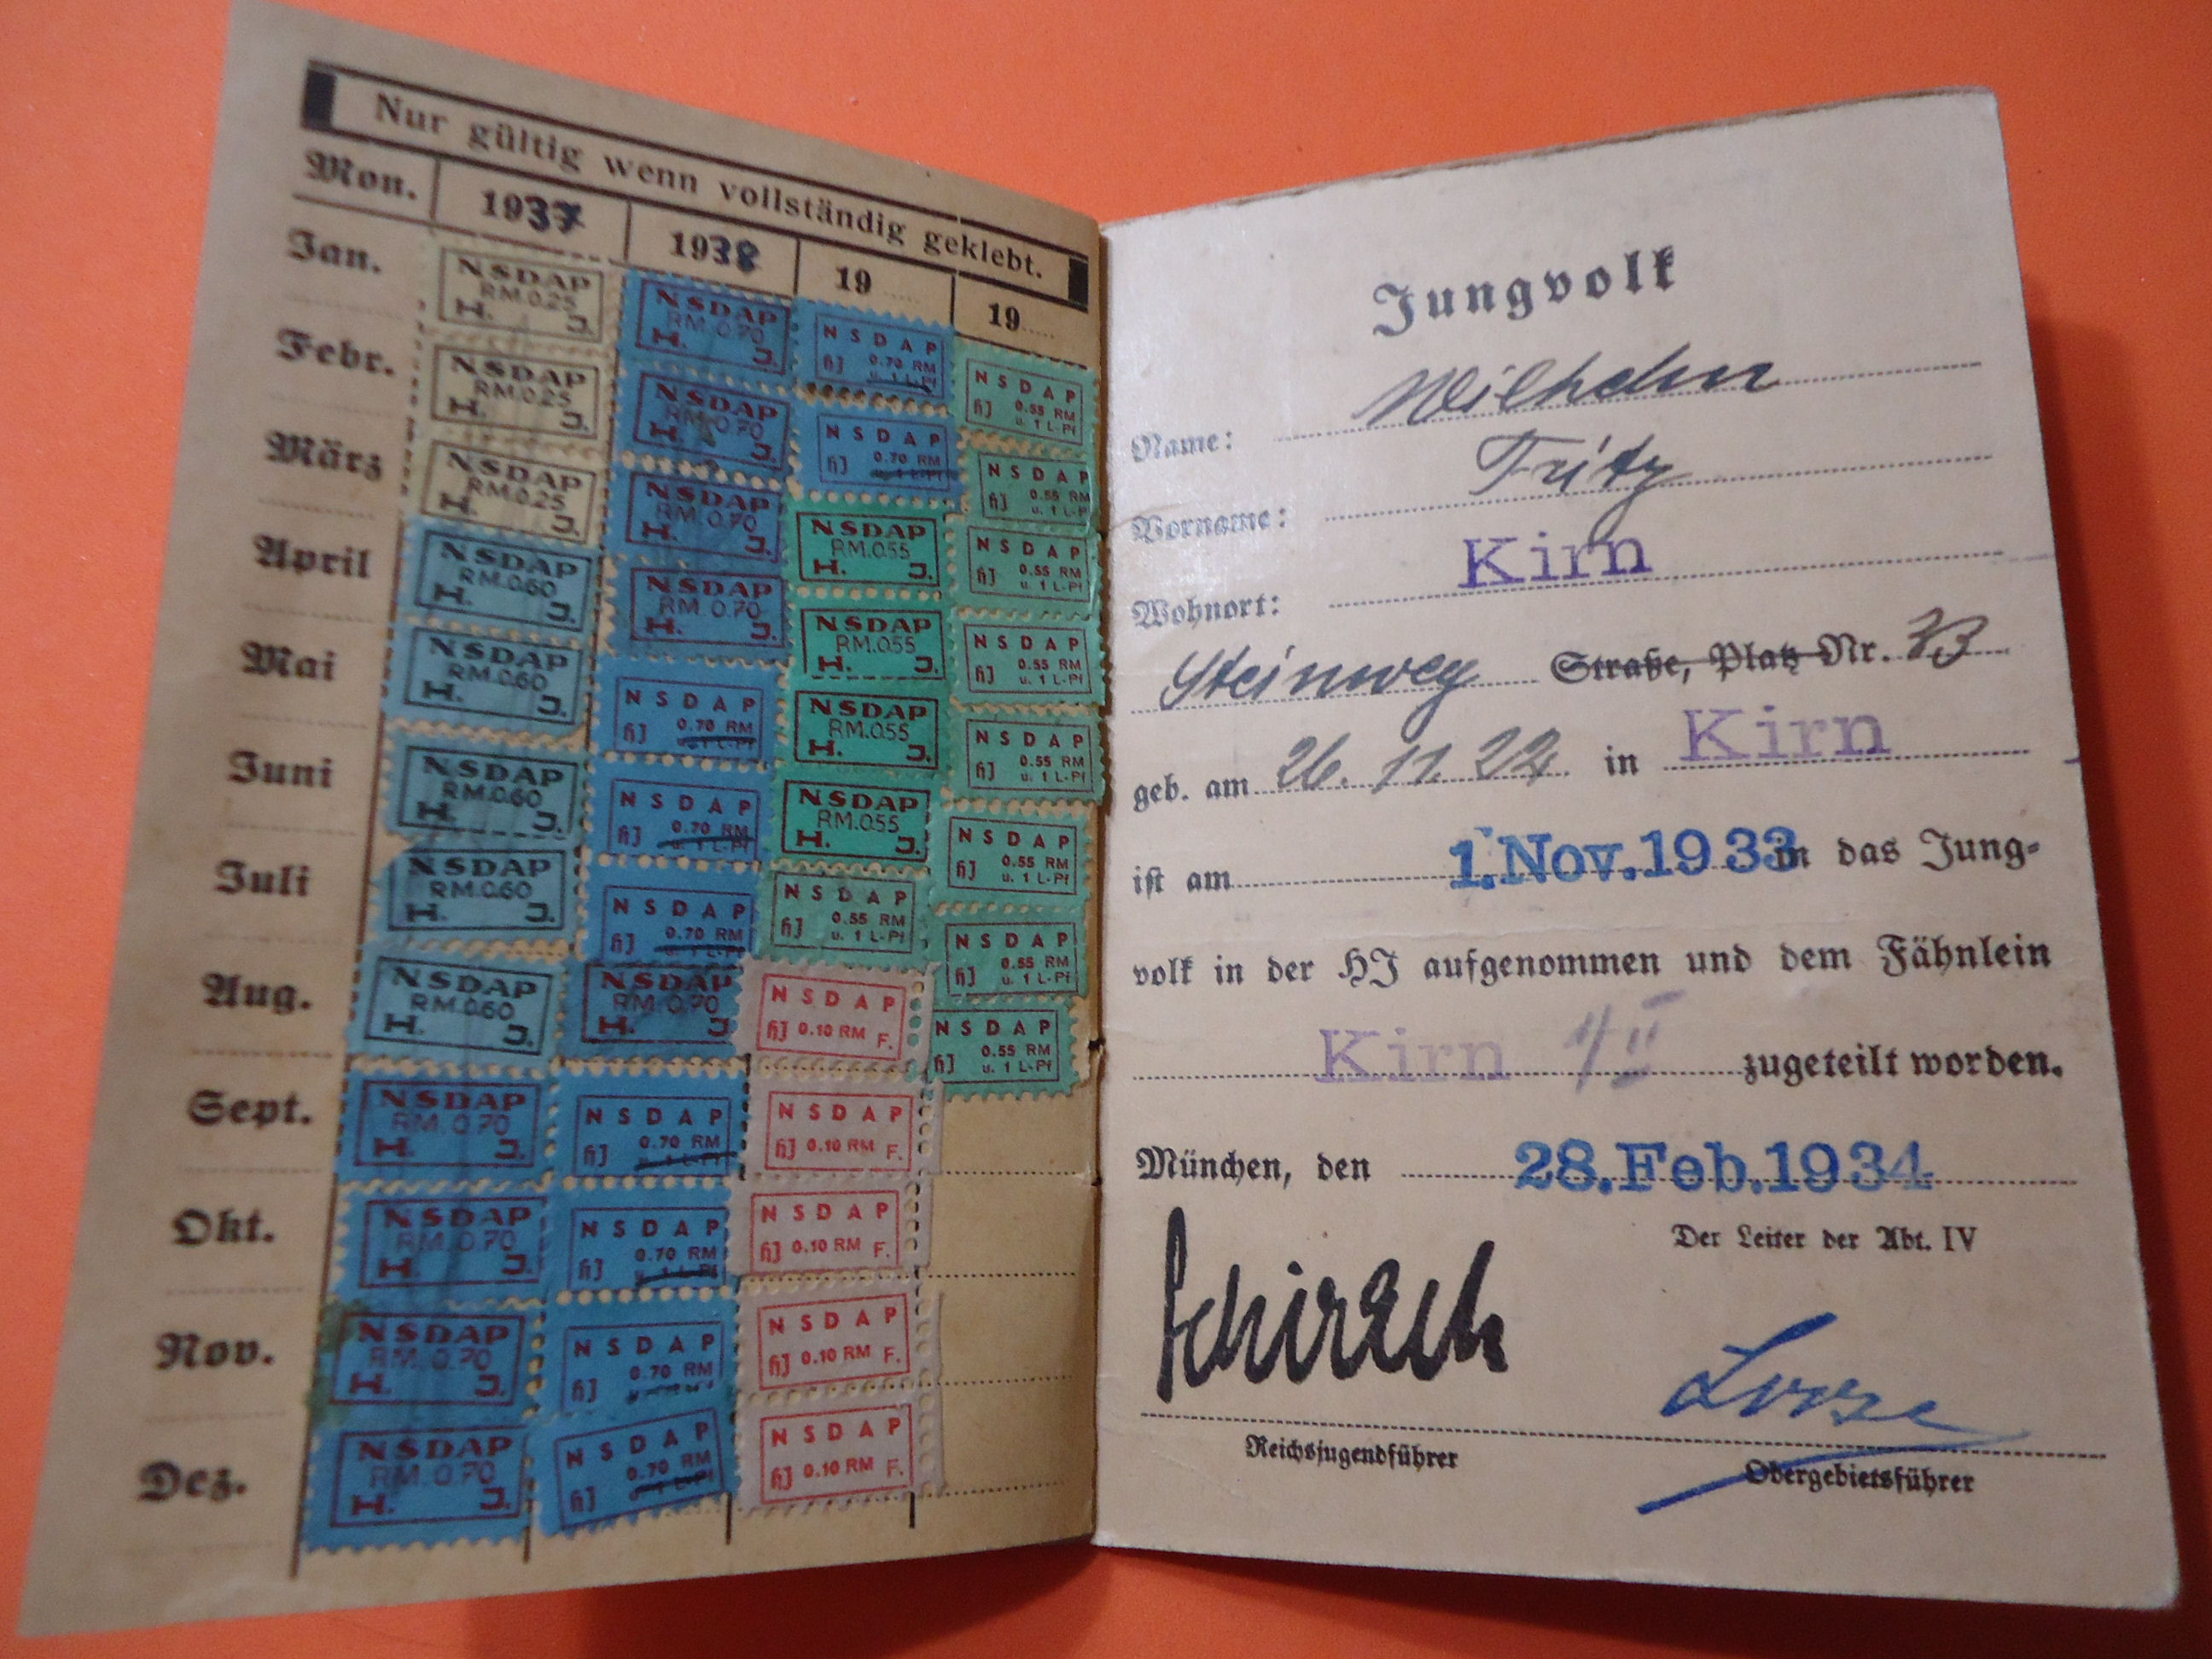 Nur gültig wenn vollständig geklebt.
Mon. 1937 1938 19 19
Jan.
Febr.
März
April
Mai
Juni
Juli
Aug.
Sept.
Okt.
Nov.
Dez.
NSDAP
RM.0.25
H. J.
NSDAP
RM.0.25
H. J.
NSDAP
RM.0.25
H. J.
NSDAP
RM.0.60
H. J.
NSDAP
RM.0.60
H. J.
NSDAP
RM.0.60
H. J.
NSDAP
RM.0.60
H. J.
NSDAP
RM.0.60
H. J.
NSDAP
RM.0.70
H. J.
NSDAP
RM.0.70
H. J.
NSDAP
RM.0.70
H. J.
NSDAP
RM.0.70
H. J.
NSDAP
RM.0.70
H. J.
NSDAP
RM.0.70
H. J.
NSDAP
RM.0.70
H. J.
NSDAP
RM.0.70
H. J.
NSDAP
HJ 0.70 RM
u. 1 L-Pf
NSDAP
HJ 0.70 RM
u. 1 L-Pf
NSDAP
HJ 0.70 RM
u. 1 L-Pf
NSDAP
RM.0.70
H. J.
NSDAP
HJ 0.70 RM
u. 1 L-Pf
NSDAP
HJ 0.70 RM
u. 1 L-Pf
NSDAP
HJ 0.70 RM
NSDAP
HJ 0.70 RM
u. 1 L-Pf
NSDAP
HJ 0.70 RM
u. 1 L-Pf
NSDAP
HJ 0.70 RM
u. 1 L-Pf
NSDAP
RM.0.55
H. J.
NSDAP
RM.0.55
H. J.
NSDAP
RM.0.55
H. J.
NSDAP
RM.0.55
H. J.
NSDAP
HJ 0.55 RM
u. 1 L-Pf
NSDAP
HJ 0.10 RM F.
NSDAP
HJ 0.10 RM F.
NSDAP
HJ 0.10 RM F.
NSDAP
HJ 0.10 RM F.
NSDAP
HJ 0.10 RM F.
NSDAP
HJ 0.55 RM
u. 1 L-Pf
NSDAP
HJ 0.55 RM
u. 1 L-Pf
NSDAP
HJ 0.55 RM
u. 1 L-Pf
NSDAP
HJ 0.55 RM
u. 1 L-Pf
NSDAP
HJ 0.55 RM
u. 1 L-Pf
NSDAP
HJ 0.55 RM
u. 1 L-Pf
NSDAP
HJ 0.55 RM
u. 1 L-Pf
NSDAP
HJ 0.55 RM
u. 1 L-Pf
Jungvolk
Name: Wilhelm
Vorname: Fritz
Wohnort: Kirn
Steinweg Straße, Platz Nr. 33
geb. am 26. 11. 22 in Kirn
ist am 1. Nov. 1933 in das Jung-
volk in der HJ aufgenommen und dem Fähnlein
Kirn II zugeteilt worden.
München, den 28. Feb. 1934
Der Leiter der Abt. IV
Schirach
Reichsjugendführer
Obergebietsführer